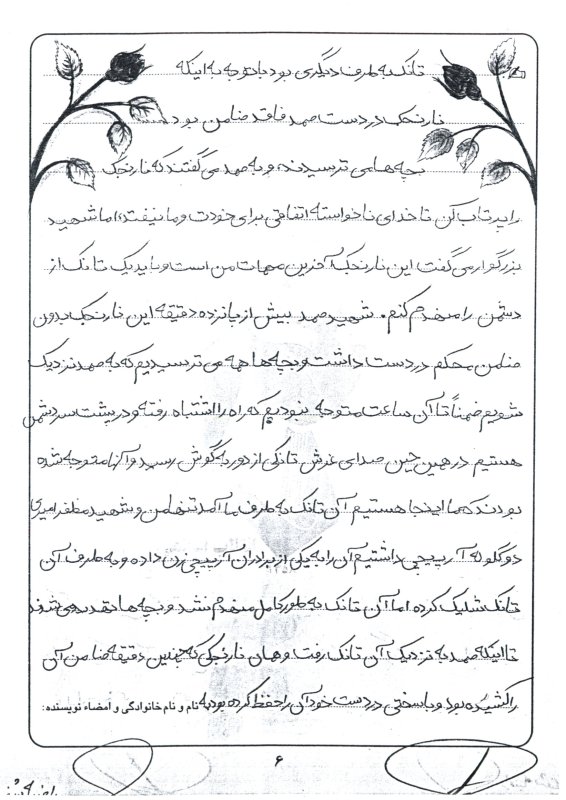 تانک به طرف دیگری بود با توجه به اینکه
نارنجک در دست صمد فاقد ضامن بود
بچه ها می ترسیدند، و به صمد می گفتند که نارنجک
را پرتاب کن تا خدای ناخواسته اتفاقی برای خودت و ما نیفتد، اما شهید
بزرگوار می گفت این نارنجک آخرین مهمات من است و باید یک تانک از
دشمن را منهدم کنم. شهید صمد بیش از پانزده دقیقه این نارنجک بدون
ضامن محکم در دست داشت و بچه ها همه می ترسیدیم که به صمد نزدیک
شویم ضمناً تا آن ساعت متوجه نبودیم که راه را اشتباه رفته و در پشت سر دشمن
هستیم در همین حین صدای غرش تانکی از دور به گوش رسید و آنها متوجه شده
بودند که ما اینجا هستیم آن تانک به طرف ما آمد تنها من و شهید مظفر امیری
دو گلوله آر پی جی داشتیم آن را به یکی از برادران آر پی جی زن داده و به طرف آن
تانک شلیک کرده اما آن تانک به طور کامل منهدم نشد و بچه ها
تا اینکه صمد به نزدیک آن تانک رفت و همان نارنجکی که چندین دقیقه ضامن آن
را کشیده بود و با سختی در دست خود آن را حفظ کرده بود به
نام و نام خانوادگی و امضاء نویسنده:
۶